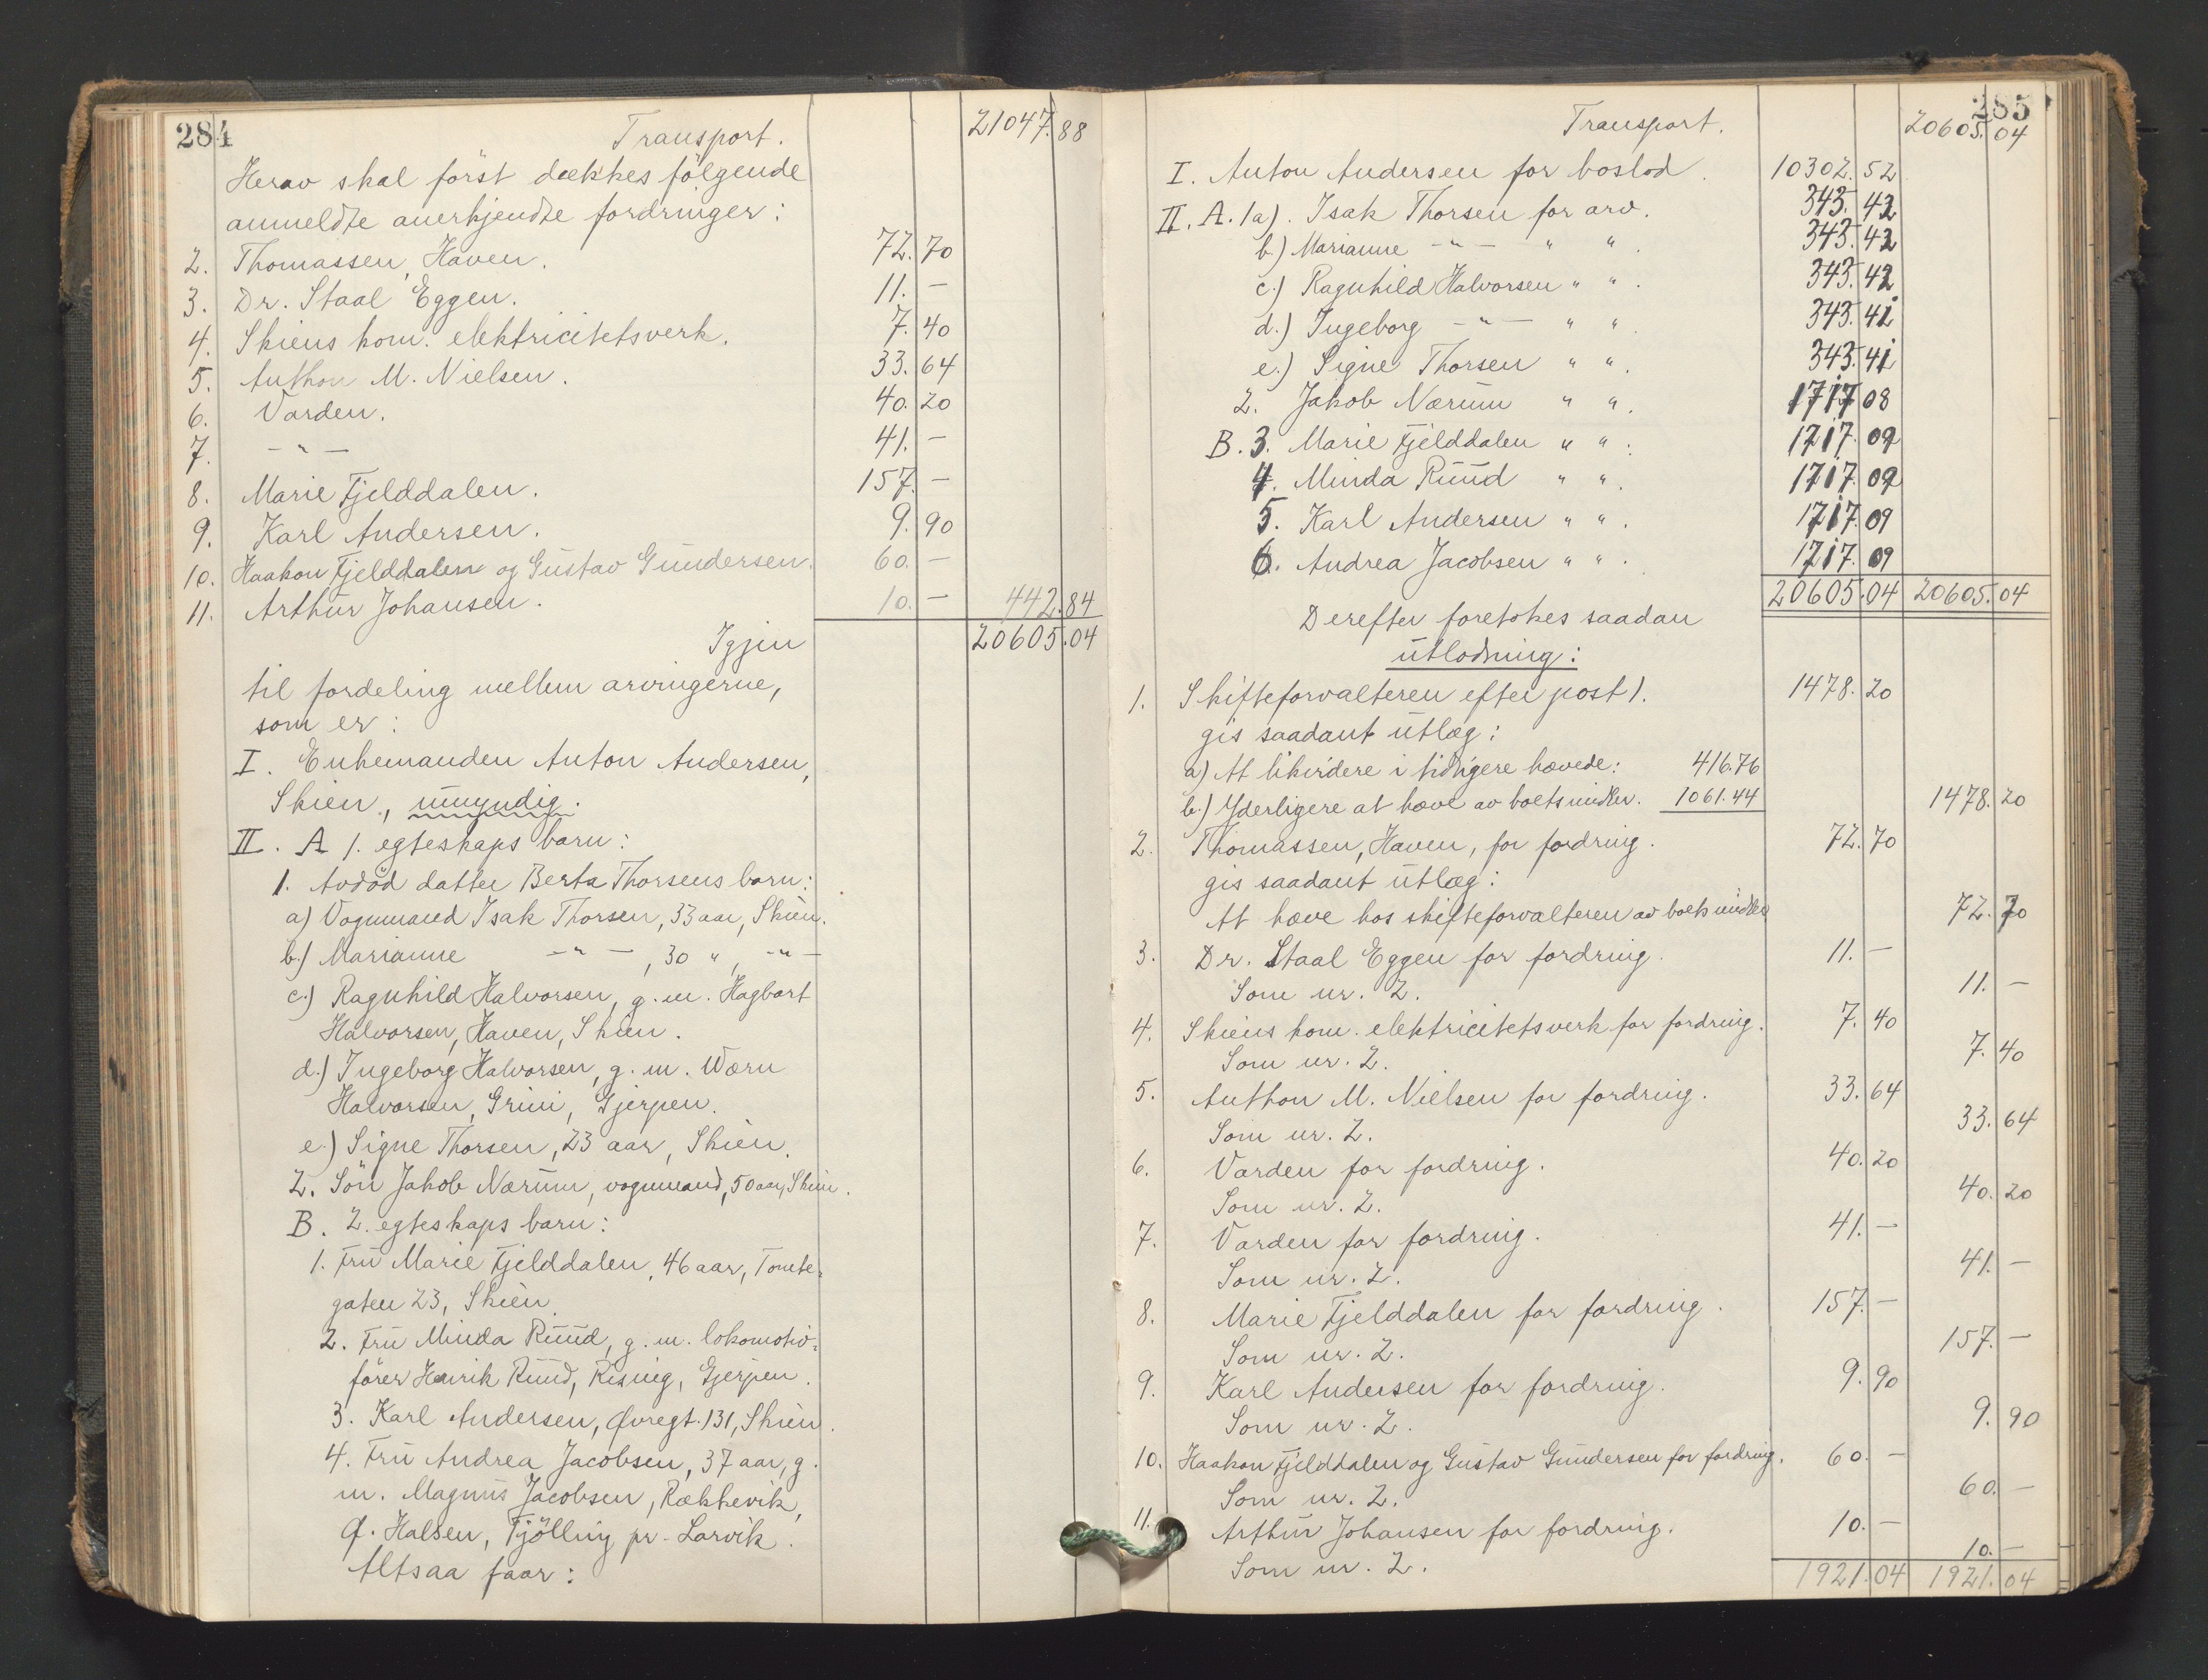 284
Transport. 21047.88
Herav skal først dækkes følgende
anmeldte anerkjendte fordringer:
2. Thomassen, Haven. 72.70
3. Dr. Staal Eggen. 11.—
4. Skiens kom. elektricitetsverk. 7.40
5. Anthon M. Nielsen. 33.64
6. Varden. 40.20
7. —"— 41.—
8. Marie Fjelddalen. 157.—
9. Karl Andersen. 9.90
10. Haakon Fjelddalen og Gustav Gundersen. 60.—
11. Arthur Johansen. 10.— 442.84
Igjen 20605.04
til fordeling mellem arvingerne,
som er:
I. Enkemanden Anton Andersen,
Skien, umyndig.
II. A 1. egteskaps barn:
1. Avdød datter Berta Thorsens barn:
a) Vognmand Isak Thorsen, 33 aar, Skien.
b.) Marianne —"—, 30 ", —"—
c.) Ragnhild Halvorsen, g. m. Hagbart
Halvorsen, Haven, Skien.
d.) Ingeborg Halvorsen, g. m. Wærn
Halvorsen, Grini, Gjerpen.
e.) Signe Thorsen, 23 aar, Skien.
2. Søn Jakob Nærum, vognmand, 50 aar, Skien.
B. 2. egteskaps barn:
1. Fru Marie Fjelddalen, 46 aar, Tomte-
gaten 23, Skien.
2. Fru Minda Ruud, g. m. lokomotiv-
fører Henrik Ruud, Rising, Gjerpen.
3. Karl Andersen, Øvregt. 131, Skien.
4. Fru Andrea Jacobsen, 37 aar, g.
m. Magnus Jacobsen, Rækkevik,
Ø. Halsen, Tjølling pr. Larvik.
Altsaa faar:
285
Transport. 20605.04
I. Anton Andersen for boslod. 10302.52
II. A. 1a). Isak Thorsen for arv. 343.42
b.) Marianne —"— " " . 343.42
c.) Ragnhild Halvorsen " " . 343.42
d.) Ingeborg —"— " " . 343.41
e.) Signe Thorsen " " . 343.41
2. Jakob Nærum " " . 1717.08
B. 3. Marie Fjelddalen " " . 1717.09
4. Minda Ruud " " . 1717.09
5. Karl Andersen " " . 1717.09
6. Andrea Jacobsen " " . 1717.09
20605.04 20605.04
Derefter foretokes saadan
utlodning:
1. Skifteforvalteren efter post 1. 1478.20
gis saadant utlæg:
a) At likvidere i tidligere hævede: 416.76
b.) Yderligere at hæve av boets midler. 1061.44 1478.20
2. Thomassen, Haven, for fordring. 72.70
gis saadant utlæg:
At hæve hos skifteforvalteren av boets midler 72.70
3. Dr. Staal Eggen for fordring. 11.—
Som nr. 2. 11.—
4. Skiens kom. elektricitetsverk for fordring. 7.40
Som nr. 2. 7.40
5. Anthon M. Nielsen for fordring. 33.64
Som nr. 2. 33.64
6. Varden for fordring. 40.20
Som nr. 2. 40.20
7. Varden for fordring. 41.—
Som nr. 2. 41.—
8. Marie Fjelddalen for fordring. 157.—
Som nr. 2. 157.—
9. Karl Andersen for fordring. 9.90
Som nr. 2. 9.90
10. Haakon Fjelddalen og Gustav Gundersen for fordring. 60.—
Som nr. 2. 60.—
11. Arthur Johansen for fordring. 10.—
Som nr. 2. 10.—
1921.04 1921.04